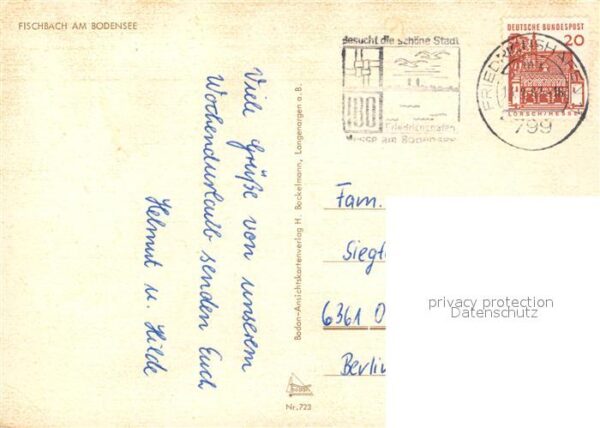 FISCHBACH AM BODENSEE
Viele Grüße von unserem
Wochenendurlaub senden Euch
Helmut u. Hilde
Bodan-Ansichtskartenverlag H. Bockelmann, Langenargen a. B.
Nr. 723
Besucht die schöne Stadt
IBO
Friedrichshafen
Messe am Bodensee
FRIEDRICHSHAFEN
799
DEUTSCHE BUNDESPOST
20
LORSCH/HESSEN
Fam.
Siegf
6361 O
Berlin
privacy protection
Datenschutz